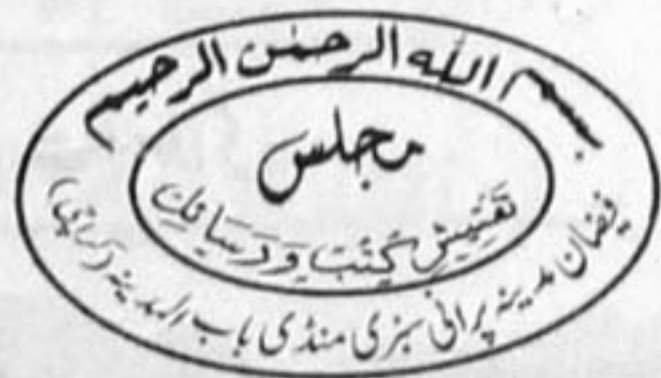 بسم الله الرحمن الرحیم
مجلس
تفتیشِ کُتب و رَسائِل
فیضان مدینہ پرانی سبزی منڈی باب المدینہ (کراچی)